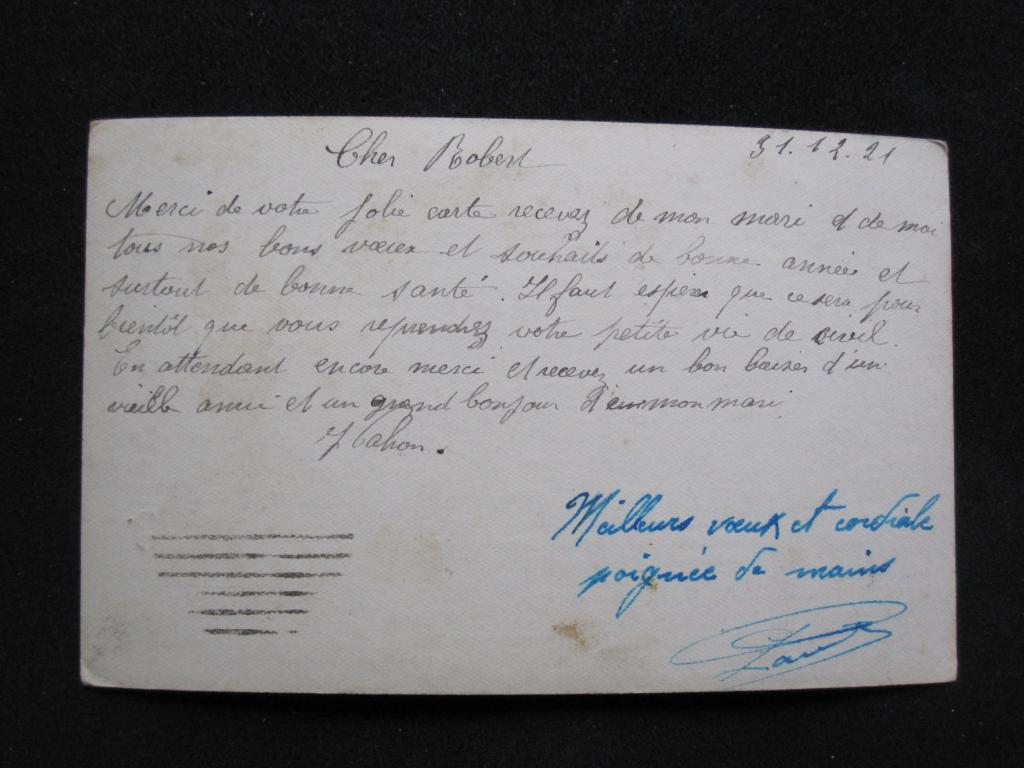 Cher Robert
31.12.21
Merci de votre jolie carte recevez de mon mari et de moi
tous nos bons vœux et souhaits de bonne année et
surtout de bonne santé. Il faut espérer que ce sera pour
bientôt que vous reprendrez votre petite vie de civil.
En attendant encore merci et recevez un bon baiser d'un
vieille amie et un grand bonjour mon mari
Meilleurs vœux et cordiale
poignée de mains